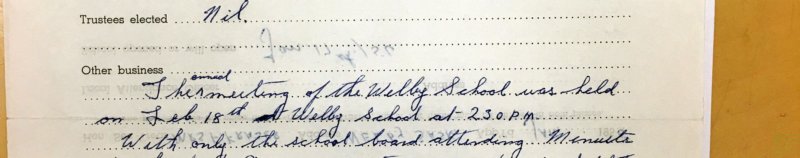 Trustees elected Nil.
Other business
annual
The meeting of the Welby School was held
on Feb 18th at Welby School at 2.30 P.M.
With only the school board attending. Minutes